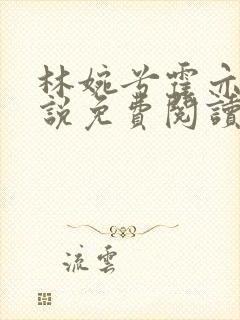 林婉兮霍亦
說免費閱讀
流雲